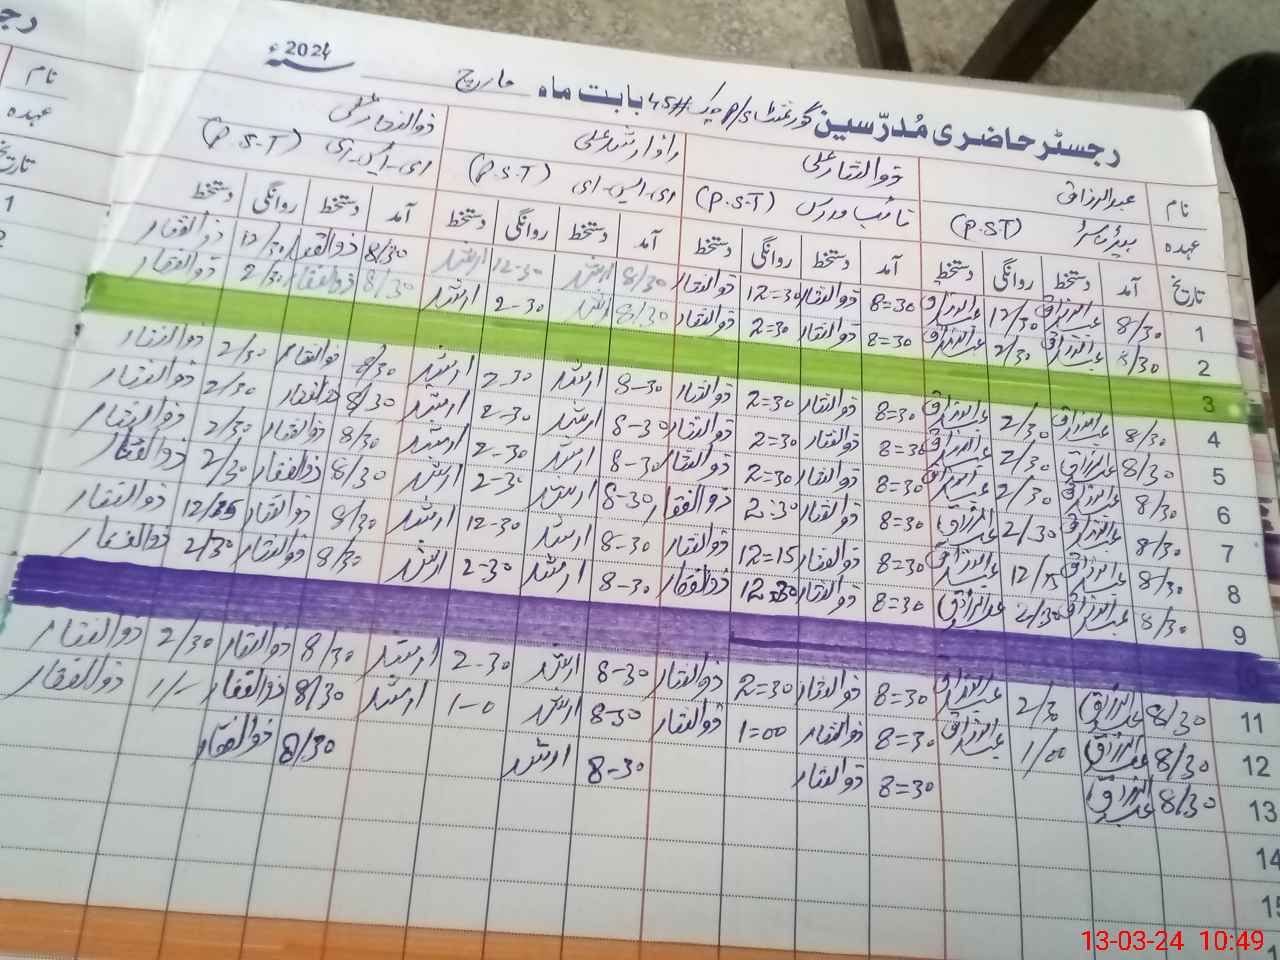 ۲۰۲۴ء
رجسٹر حاضری مُدرّسین گورنمنٹ P/S چک #45 بابت ماہ مارچ
نام عبدالرزاق ذوالفقار علی راؤ ارشد علی ذوالفقار علی
عہدہ ہیڈ ماسٹر (P.S.T) نائب مدرس (P.S.T) ای۔ایس۔ای (P.S.T) ای۔ایس۔ای (P.S.T)
تاریخ آمد دستخط روانگی دستخط آمد دستخط روانگی دستخط آمد دستخط روانگی دستخط آمد دستخط روانگی دستخط
1 8/30 عبدالرزاق 12/30 عبدالرزاق 8=30 ذوالفقار 12=30 ذوالفقار 8/30 ارشد 12-30 ارشد 8/30 ذوالفقار 12/30 ذوالفقار
2 8/30 عبدالرزاق 2/30 عبدالرزاق 8=30 ذوالفقار 2=30 ذوالفقار 8/30 ارشد 2-30 ارشد 8/30 ذوالفقار 2/30 ذوالفقار
3
4 8/30 عبدالرزاق 2/30 عبدالرزاق 8=30 ذوالفقار 2=30 ذوالفقار 8-30 ارشد 2-30 ارشد 8/30 ذوالفقار 2/30 ذوالفقار
5 8/30 عبدالرزاق 2/30 عبدالرزاق 8=30 ذوالفقار 2=30 ذوالفقار 8-30 ارشد 2-30 ارشد 8/30 ذوالفقار 2/30 ذوالفقار
6 8/30 عبدالرزاق 2/30 عبدالرزاق 8=30 ذوالفقار 2=30 ذوالفقار 8-30 ارشد 2-30 ارشد 8/30 ذوالفقار 2/30 ذوالفقار
7 8/30 عبدالرزاق 2/30 عبدالرزاق 8=30 ذوالفقار 2:30 ذوالفقار 8-30 ارشد 2-30 ارشد 8/30 ذوالفقار 2/30 ذوالفقار
8 8/30 عبدالرزاق 12/15 عبدالرزاق 8=30 ذوالفقار 12=15 ذوالفقار 8-30 ارشد 12-30 ارشد 8/30 ذوالفقار ذوالفقار
9 8/30 عبدالرزاق 2/30 عبدالرزاق 8=30 ذوالفقار ذوالفقار 8-30 ارشد 2-30 ارشد 8/30 ذوالفقار 2/30 ذوالفقار
10
11 8/30 عبدالرزاق 2/30 عبدالرزاق 8=30 ذوالفقار 2=30 ذوالفقار 8-30 ارشد 2-30 ارشد 8/30 ذوالفقار 2/30 ذوالفقار
12 8/30 عبدالرزاق 1/00 عبدالرزاق 8=30 ذوالفقار 1=00 ذوالفقار 8-30 ارشد 1-0 ارشد 8/30 ذوالفقار 1/- ذوالفقار
13 8/30 عبدالرزاق 8=30 ذوالفقار 8-30 ارشد 8/30 ذوالفقار
14
15
نام
عہدہ
تاریخ
1
2
13-03-24 10:49